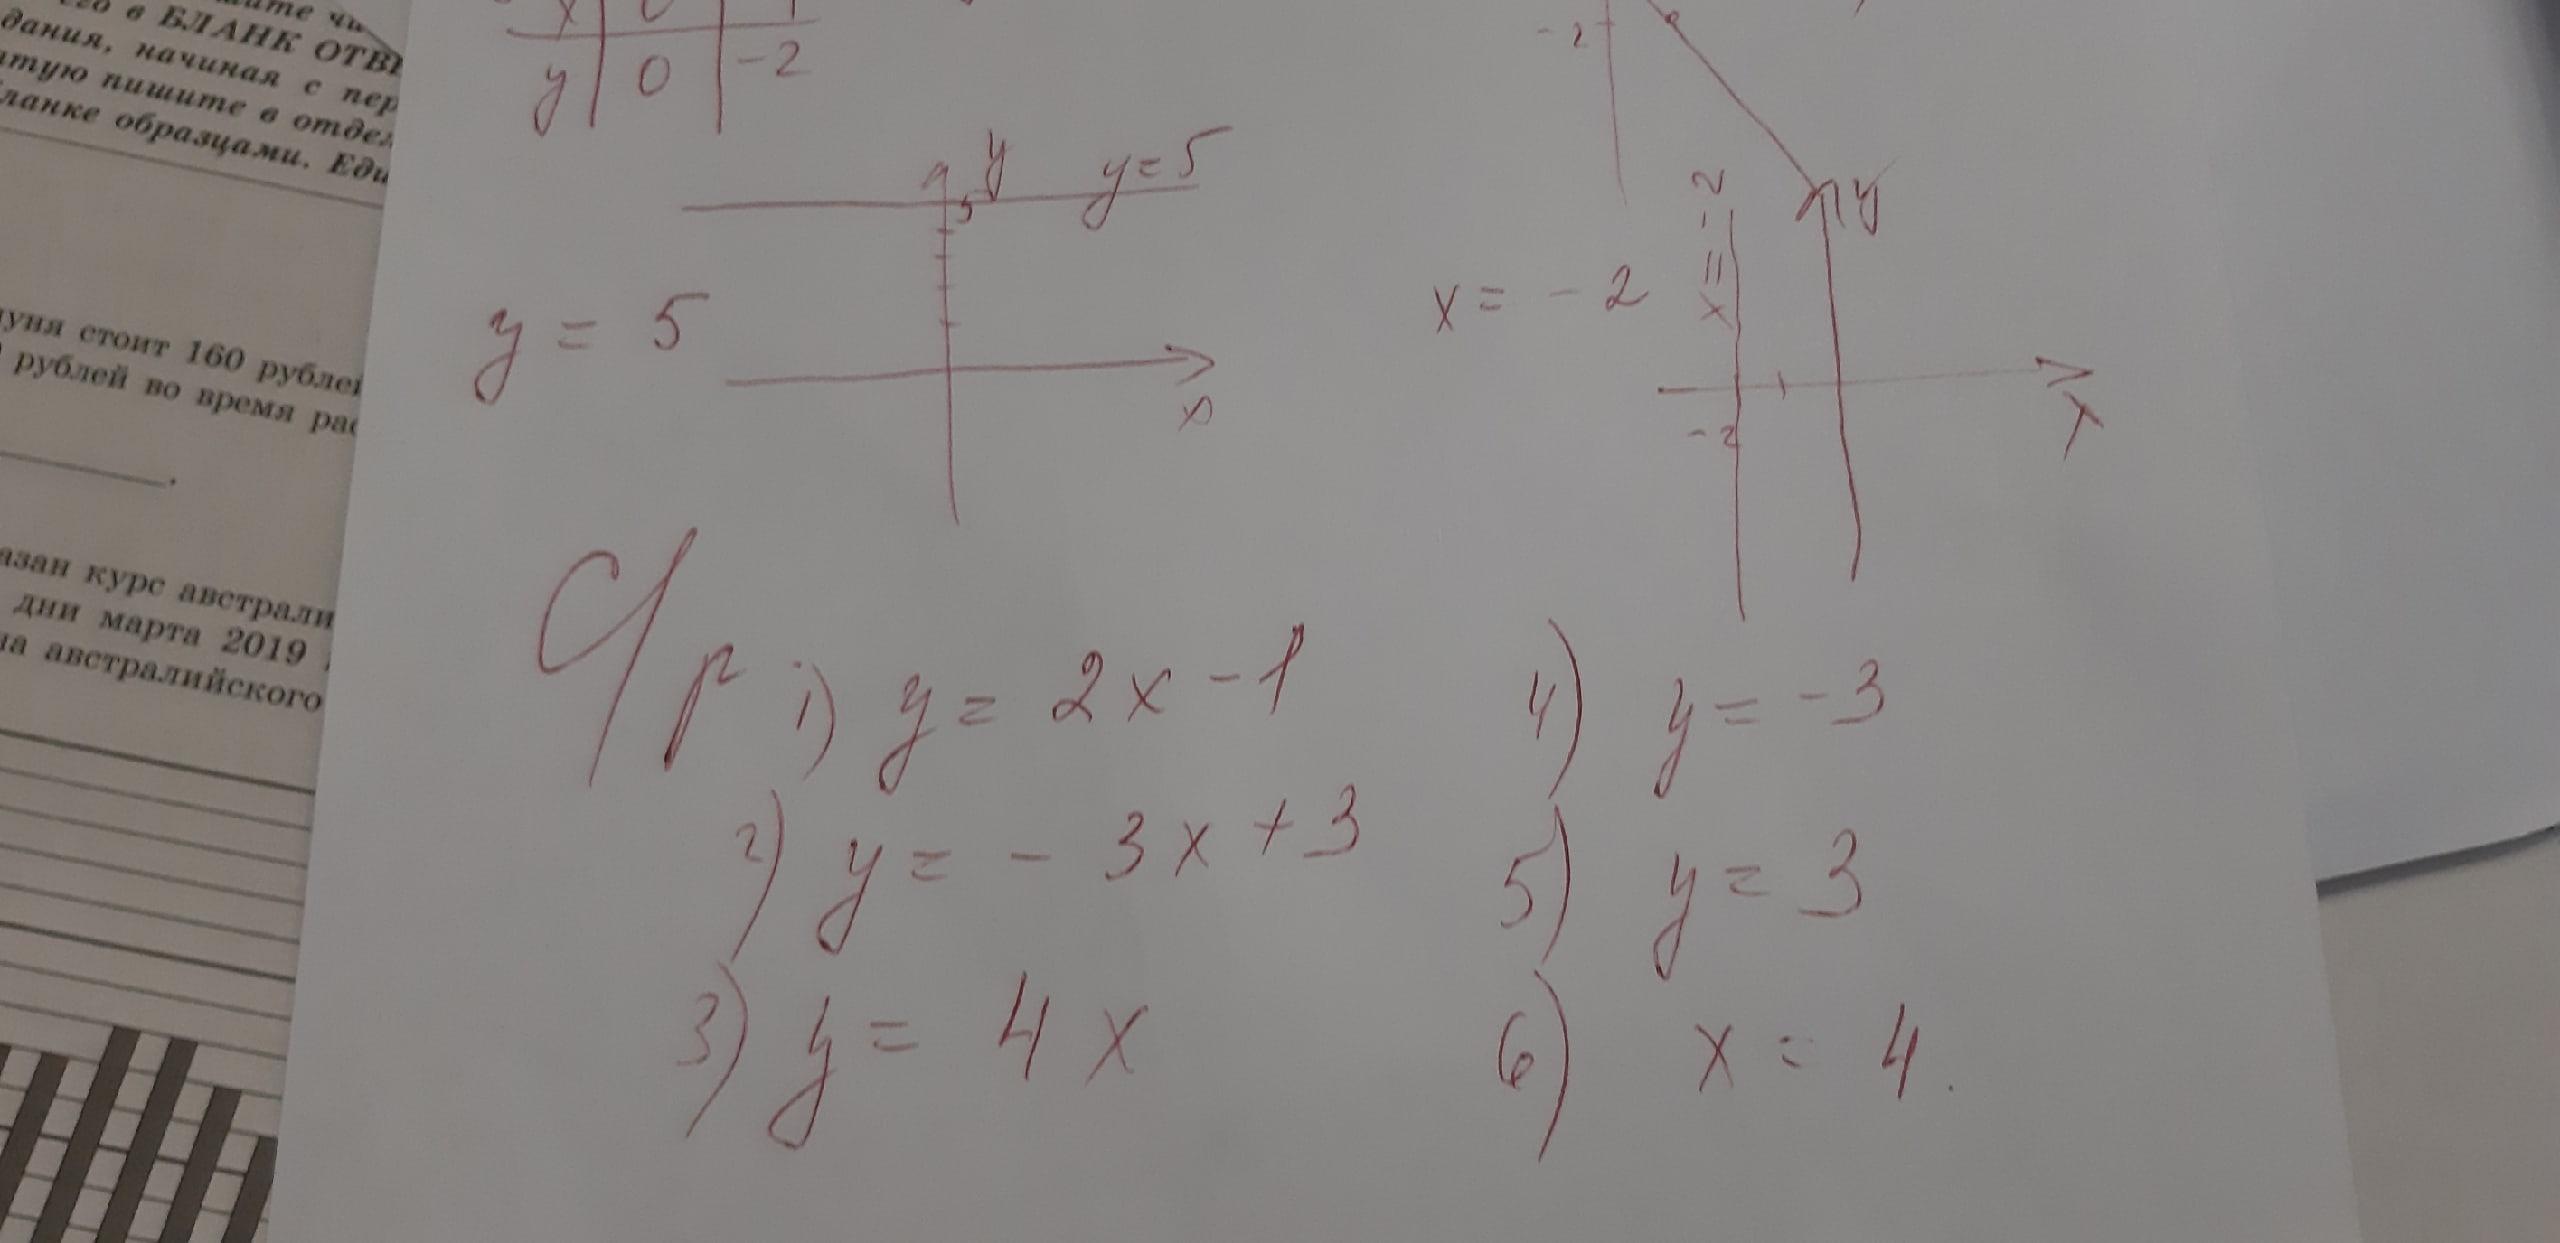 в БЛАНК ОТВЕ
дания, начиная с пер
пишите в отдел
образцами. Еди
стоит 160 рублей
рублей во время рас
курс австрали
дни марта 2019
австралийского
x | 0 | 1
y | 0 | -2
-2
y
y = 5
5
y = 5
x
y
x = -2
x = -2
-2
x
С/р 1) y = 2x - 1
2) y = - 3x + 3
3) y = 4x
4) y = -3
5) y = 3
6) x = 4.